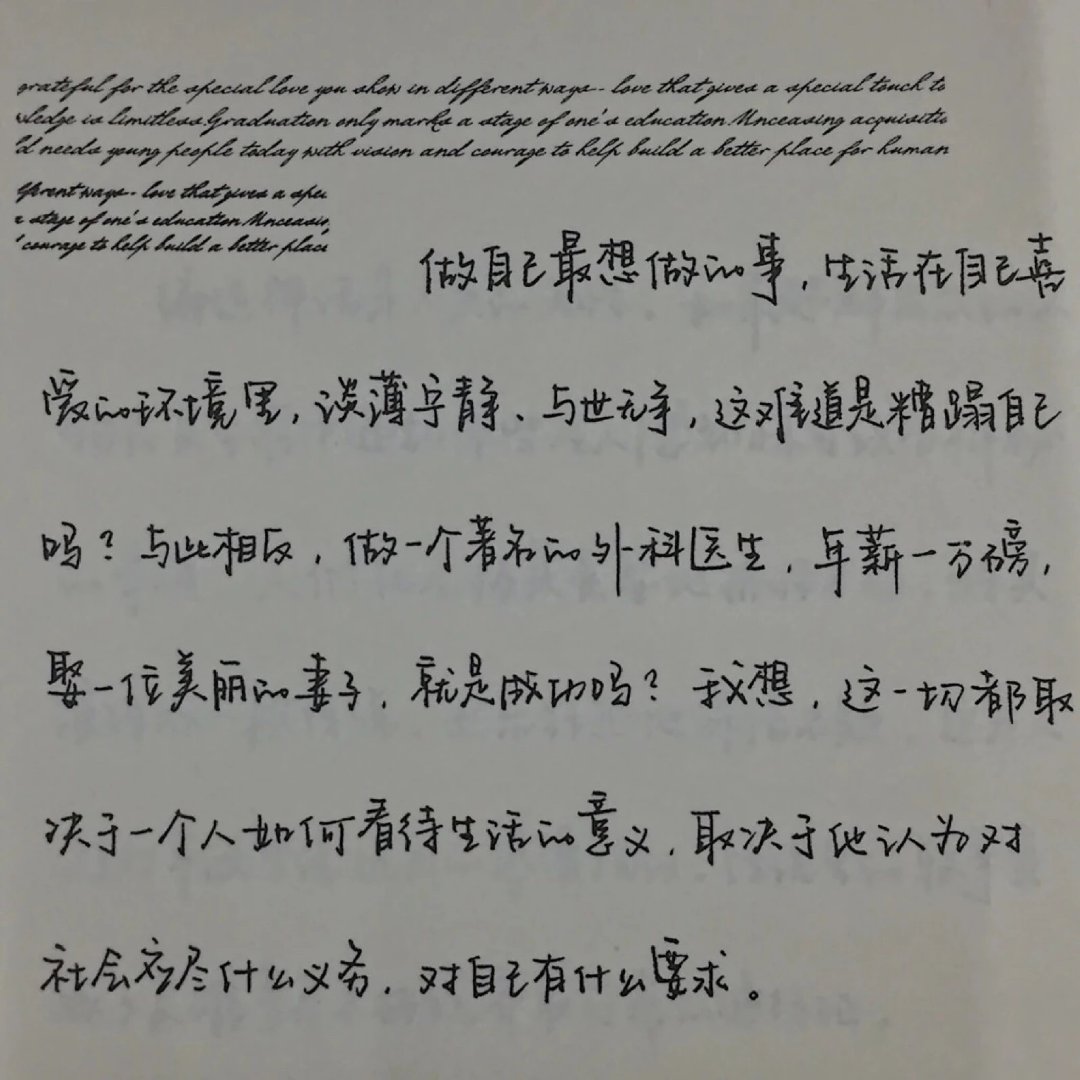 grateful for the special love you show in different ways - love that gives a special touch to
wledge is limitless.Graduation only marks a stage of one's education.Unceasing acquisitio
d needs young people today with vision and courage to help build a better place for human
fferent ways - love that gives a spec
a stage of one's education.Unceasin
courage to help build a better place
做自己最想做的事，生活在自己喜
爱的环境里，淡薄宁静、与世无争，这难道是糟蹋自己
吗？与此相反，做一个著名的外科医生，年薪一万磅，
娶一位美丽的妻子，就是成功吗？我想，这一切都取
决于一个人如何看待生活的意义，取决于他认为对
社会应尽什么义务，对自己有什么要求。